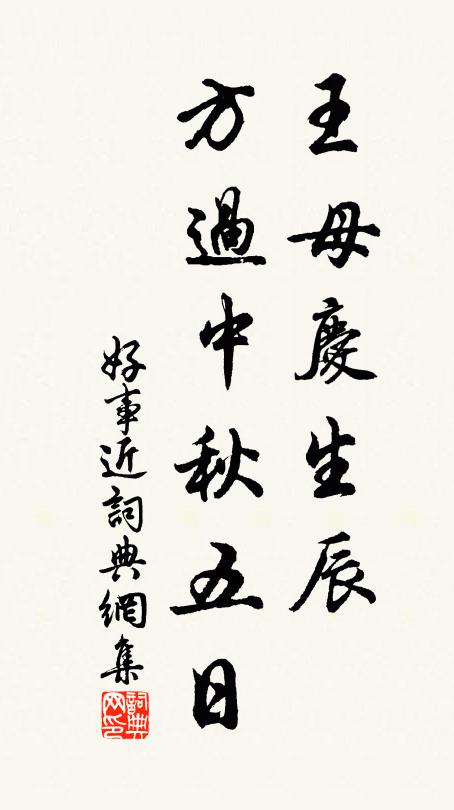 王母慶生辰
方過中秋五日
好事近詞典網集
詞典
网印